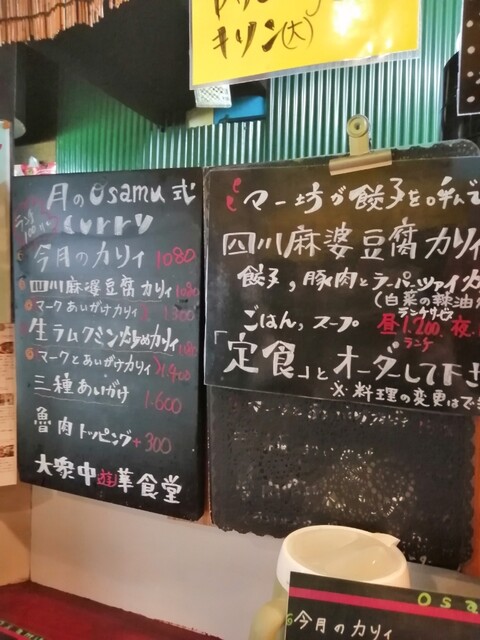 キリン(大)
月のOsamu式
curry
今月のカリィ 1080
四川麻婆豆腐カリィ 1080
マークあいがけカリィ 1.300
生ラムクミン炒めカリィ
マークとあいがけカリィ 1.400
三種あいがけ 1.600
魯肉トッピング+300
大衆中遊華食堂
マー坊が餃子を呼んで
四川麻婆豆腐カリィ
餃子,豚肉とラーパーツァイ
(白菜の辣油
ランチサービス
ごはん,スープ 昼1.200. 夜.
ランチ
「定食」とオーダーして下さ
※料理の変更はで
Osa
今月のカリィ